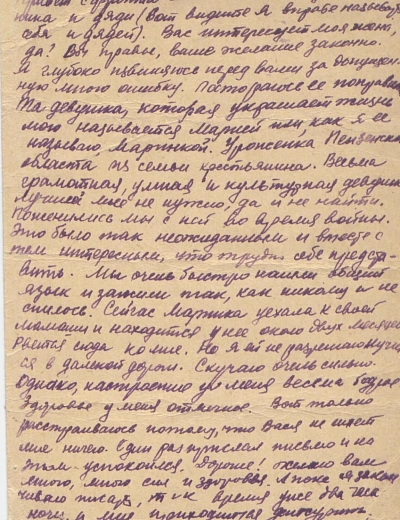 ника и дяди (вот видите я вправе называть
себя и дядей). Вас интересует моя жена,
да? Вы правы, ваше желание законно.
Я глубоко извиняюсь перед вами за допущен-
ную мною ошибку. Постараюсь ее поправить
Та девушка, которая украшает жизнь
мою называется Марией или, как я ее
называю, Маринкой. Уроженка Пензенской
области из семьи крестьянина. Весьма
грамотная, умная и культурная девушка.
Лучшей мне не нужно, да и не найти.
Поженились мы с ней во время войны.
Это было так неожиданным и вместе с
тем интересным, что трудно себе предста-
вить. Мы очень быстро нашли общий
язык и зажили так, как никому и не
снилось. Сейчас Маринка уехала к своей
мамаши и находится у нее около двух месяцев
Рвется сюда ко мне. Но я ей не разрешаю мучить-
ся в далекой дороге. Скучаю очень сильно.
Однако, настроение у меня весьма бодрое
Здоровье у меня отличное. Вот только
расстраиваюсь потому, что Вася не пишет
мне ничего. Один раз прислал письмо и на
этом успокоился. Дорогие! Желаю вам
много, много сил и здоровья. А пока я закан-
чиваю писать, т.к. время уже два часа
ночи, а мне приходится дежурить.